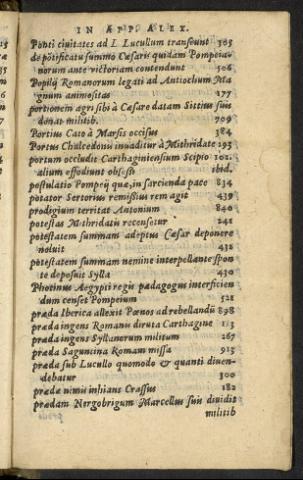 IN APP. ALEX.
Ponti ciuitates ad L. Lucullum transeunt 305
de pōtificatu summo Cæsaris quidam Pompeia-
norum ante victoriam contendunt 506
Popilij Romanorum legati ad Antiochum Ma
gnum animositas 177
portionem agri sibi à Cæsare datam Sittius suis
donat militib. 909
Portius Cato à Marsis occisus 384
Portus Chalcedonis inuaditur à Mithridate 293
portum occludit Carthaginiensum Scipio 102.
alium effodiunt obsessi ibid.
postulatio Pompeij quæ, in sarcienda pace 834
potator Sertorius remissius rem agit 439
prodigium territat Antonium 840
potestas Mithridatis recensetur 241
potestatem summam adeptus Cæsar deponere
noluit 431
potestatem summam nemine interpellante spon
te deposuit Sylla 430
Photinus Aegypti regis pædagogus interficien
dum censet Pompeium 521
præda Iberica allexit Pœnos ad rebellandū 898
præda ingens Romanis diruta Carthagine 113
præda ingens Syllanerum militum 267
præda Saguncina Romam missa 913
præda sub Lucullo quomodo & quanti diuen-
debatur 300
prædæ nimis inhians Crassus 182
prædam Nergobrigum Marcellus suis diuidit
militib